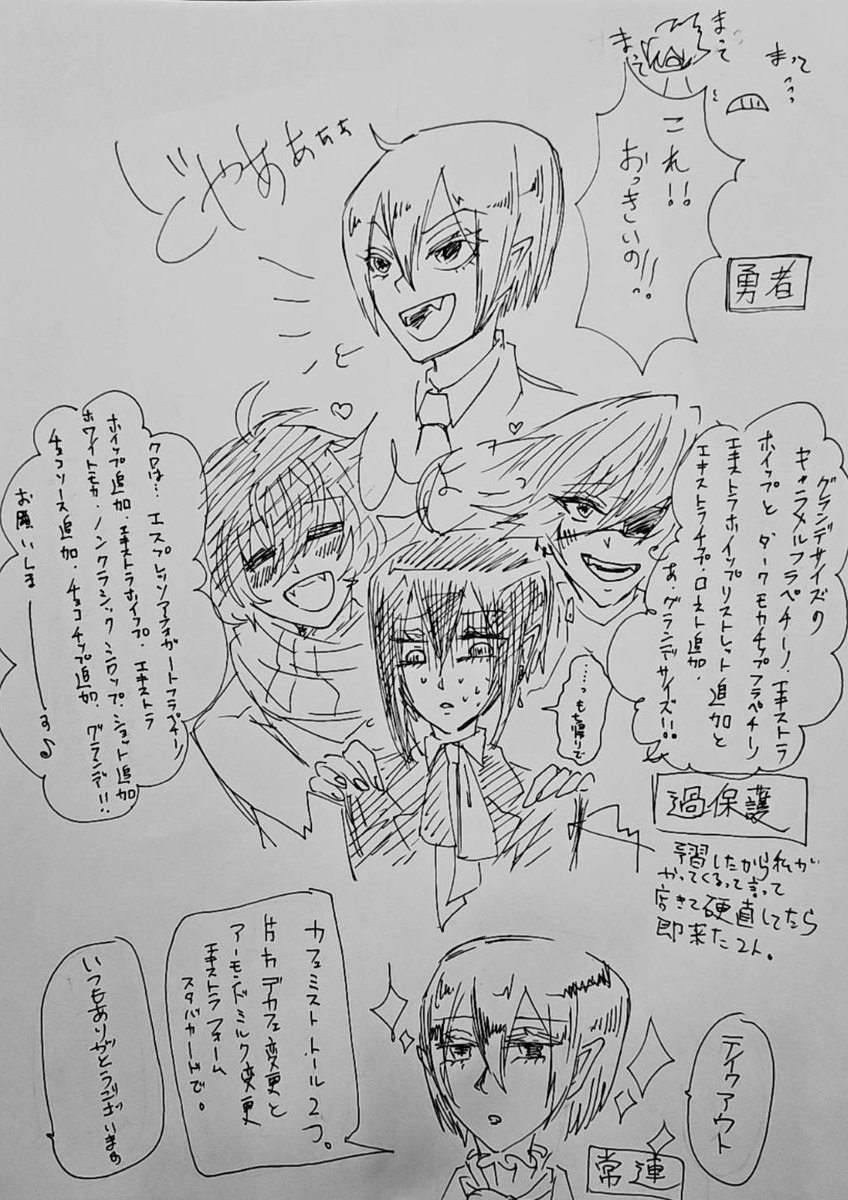 まって
まって
まって
これ!!
おっきいの!!
勇者
どやあぁぁぁ
グランデサイズの
キャラメルフラペチーノ、エキストラ
ホイップと ダークモカチップフラペチーノ
エキストラホイップリストレット追加と
エキストラチップ・ロースト追加、
あ、グランデサイズ!!
クロは… エスプレッソアフォガートフラペチーノ
ホイップ追加・エキストラホイップ・エキストラ
ホワイトモカ・ノンクラシックシロップ・ショット追加
チョコソース追加・チョコチップ追加、グランデ!!
お願いしまーーーーす♪
……っもち帰りで
過保護
予習したから私が
やってくるって言って
店きて硬直してたら
即来た2人。
テイクアウト
カフェミスト トール2つ。
片方デカフェ変更と
アーモンドミルク変更
エキストラフォーム
スタバカードで。
いつもありがとうございます
常連